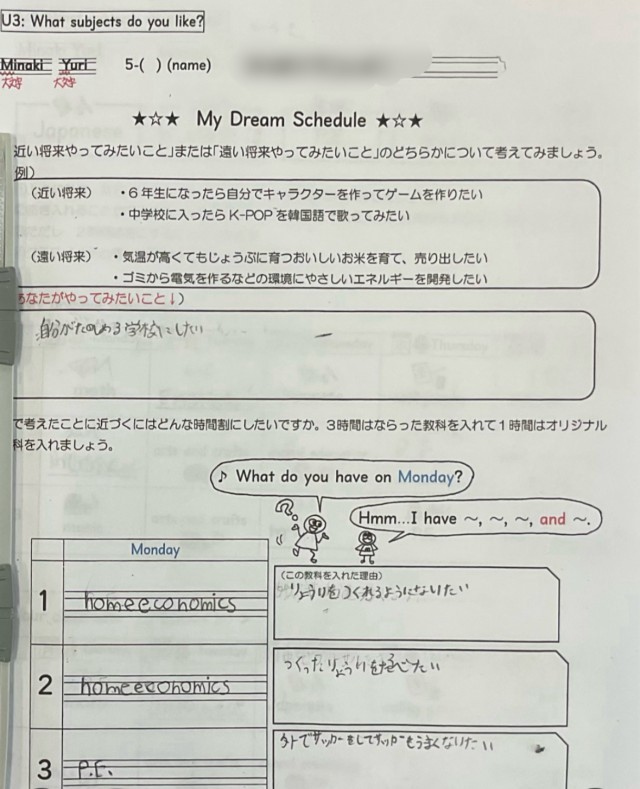 U3: What subjects do you like?
Minaki Yuri 5-( ) (name)
大文字 大文字
★☆★ My Dream Schedule ★☆★
近い将来やってみたいこと」または「遠い将来やってみたいこと」のどちらかについて考えてみましょう。
例）
（近い将来） ・６年生になったら自分でキャラクターを作ってゲームを作りたい
・中学校に入ったらK-POPを韓国語で歌ってみたい
（遠い将来） ・気温が高くてもじょうぶに育つおいしいお米を育て、売り出したい
・ゴミから電気を作るなどの環境にやさしいエネルギーを開発したい
あなたがやってみたいこと↓）
自分がたのしめる学校にしたい
で考えたことに近づくにはどんな時間割にしたいですか。３時間はならった教科を入れて１時間はオリジナル
科を入れましょう。
♪ What do you have on Monday?
Hmm...I have ～, ～, ～, and ～.
Monday
（この教科を入れた理由）
1 homeeconomics りょうりをつくれるようにないたい
2 homeeconomics つくったりょうりをたべたい
3 P.E. 外でサッカーをしてサッカーもうまくなりたい